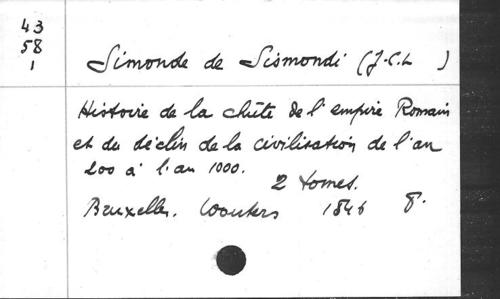 43
58
1
Simonde de Sismondi (J.C.L )
Histoire de la chûte de l'empire Romain
et du déclin de la civilisation de l'an
200 à l'an 1000.
2 tomes.
Bruxelles. Wouters 1846 8°.